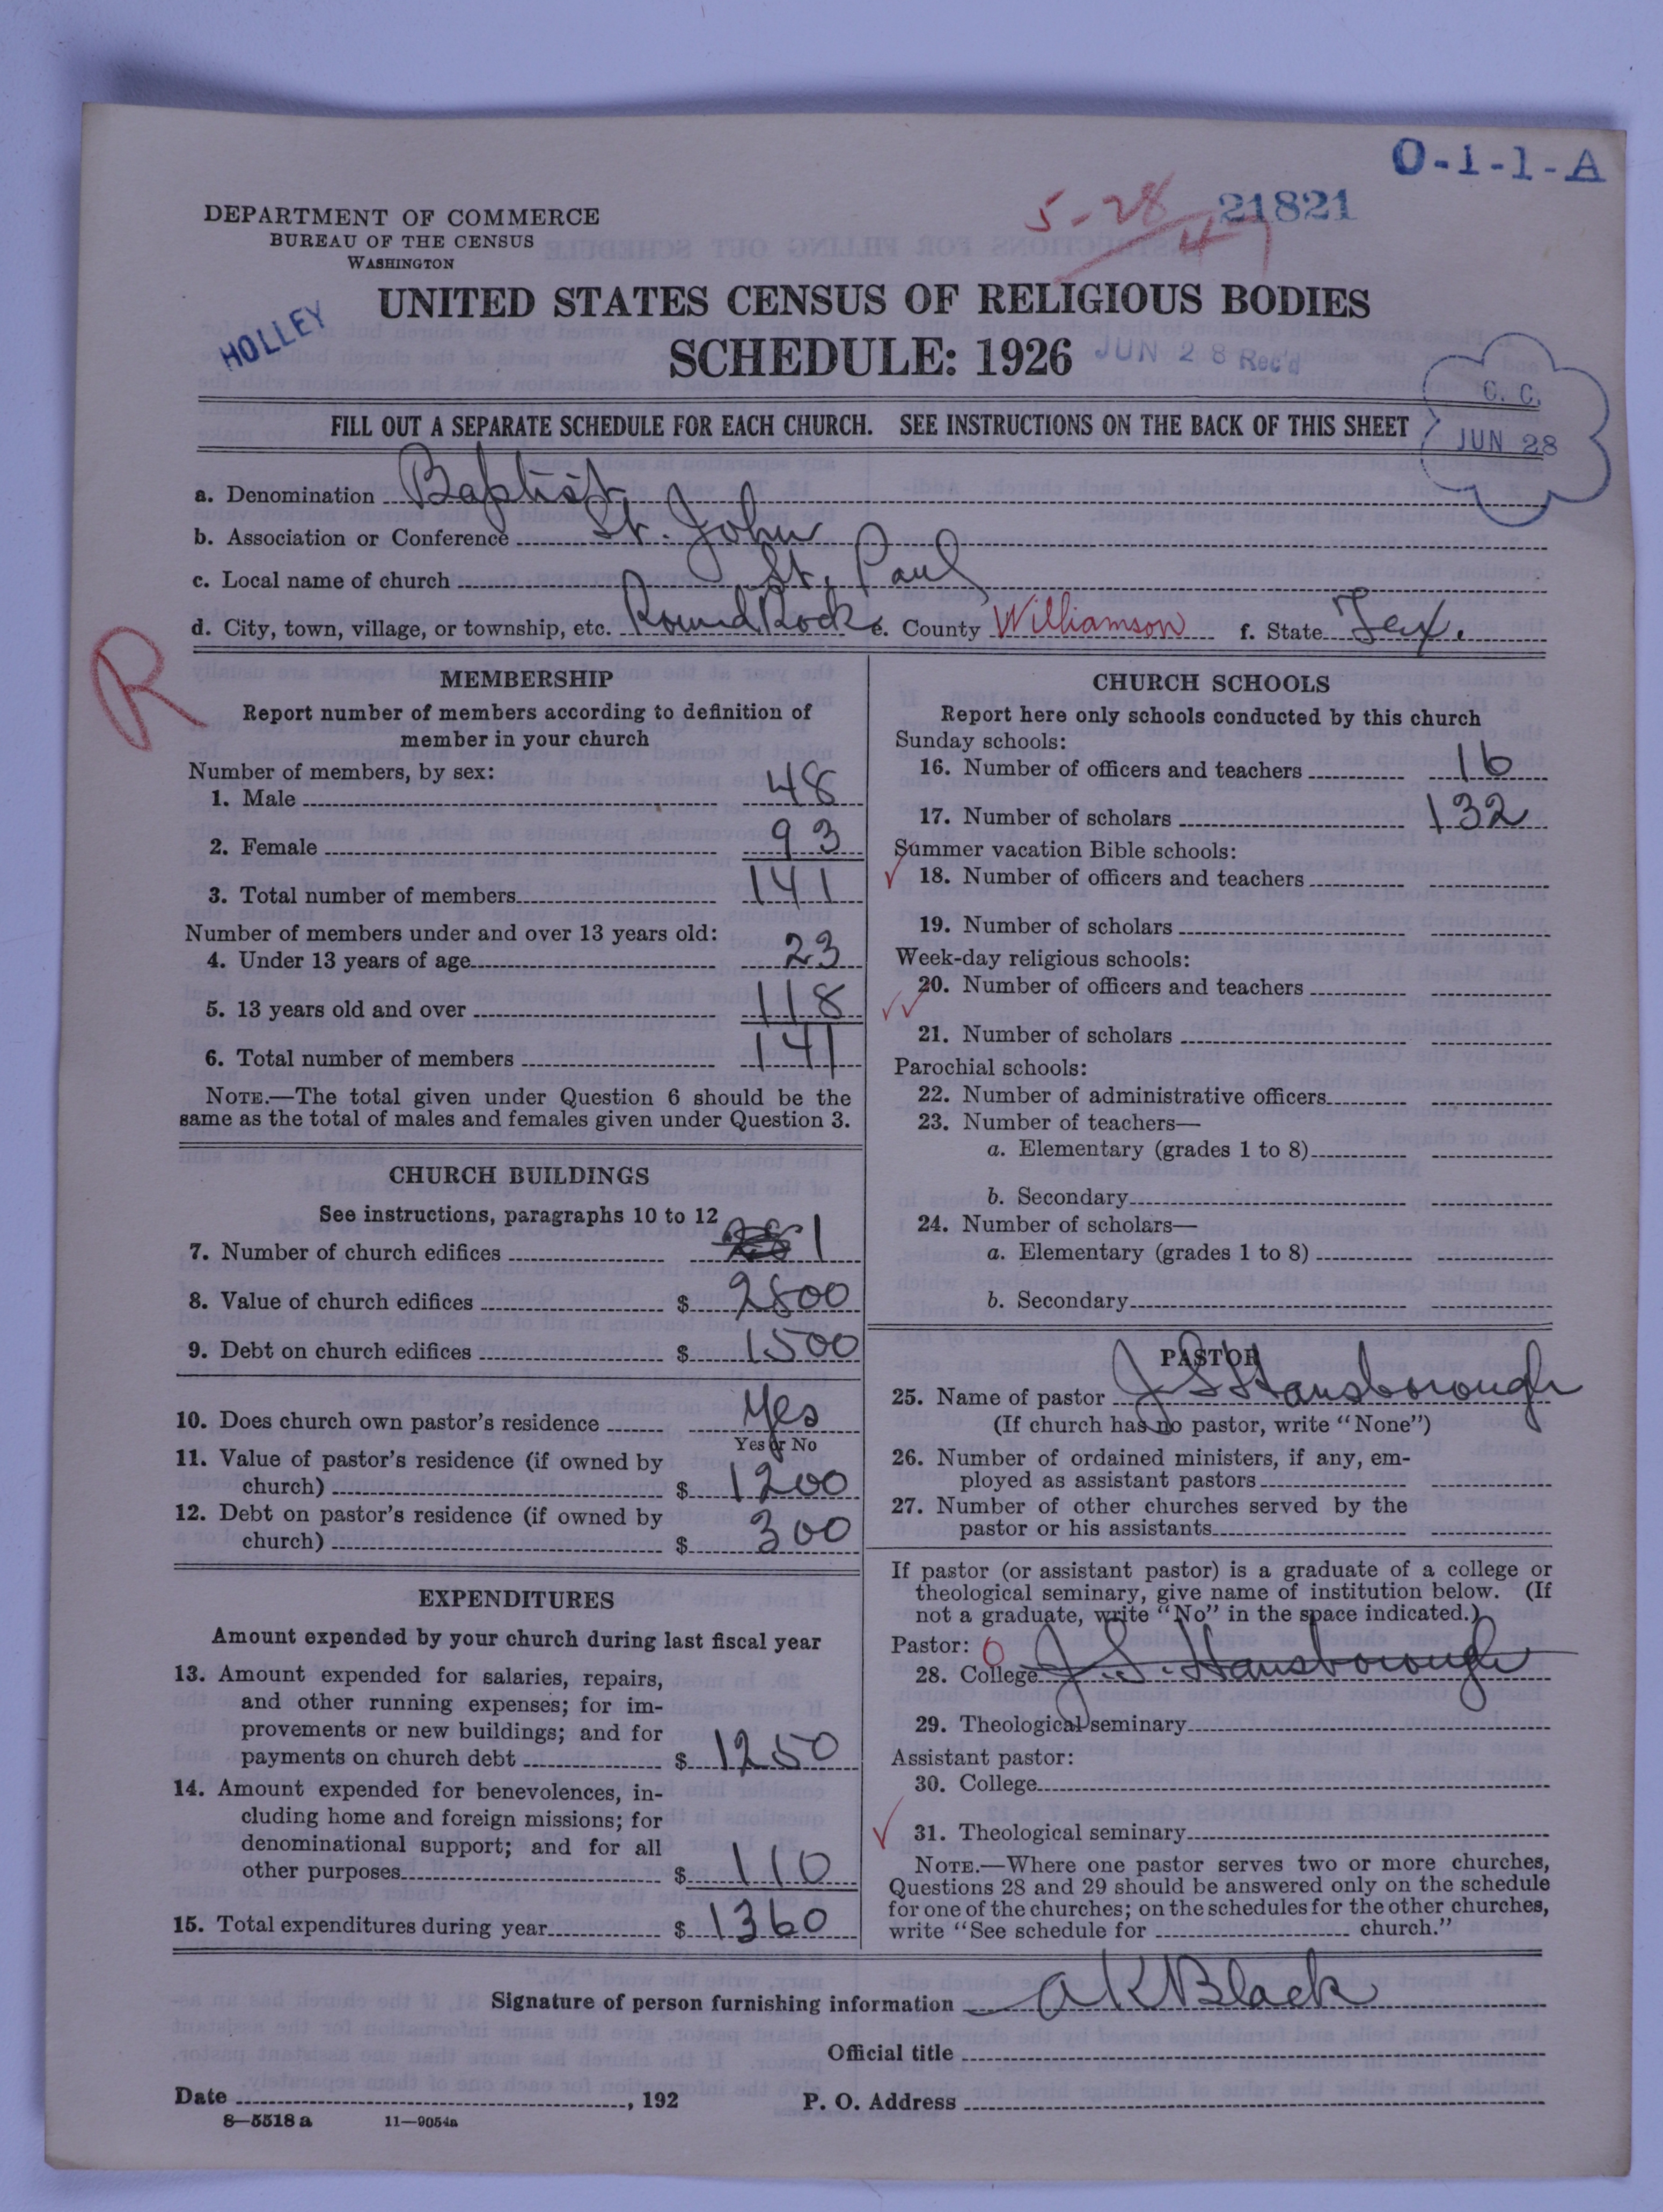 O-1-1-A
5-28
21821
DEPARTMENT OF COMMERCE
BUREAU OF THE CENSUS
WASHINGTON
HOLLEY
UNITED STATES CENSUS OF RELIGIOUS BODIES
SCHEDULE: 1926
JUN 28 Rec'd
C. C.
JUN 28
FILL OUT A SEPARATE SCHEDULE FOR EACH CHURCH. SEE INSTRUCTIONS ON THE BACK OF THIS SHEET
a. Denomination Baptist
b. Association or Conference St. John
c. Local name of church St. Paul
d. City, town, village, or township, etc. Round Rock e. County Williamson f. State Tex.
R
MEMBERSHIP
Report number of members according to definition of
member in your church
Number of members, by sex:
1. Male 48
2. Female 93
3. Total number of members 141
Number of members under and over 13 years old:
4. Under 13 years of age 23
5. 13 years old and over 118
6. Total number of members 141
NOTE.—The total given under Question 6 should be the
same as the total of males and females given under Question 3.
CHURCH BUILDINGS
See instructions, paragraphs 10 to 12
7. Number of church edifices 1
8. Value of church edifices $ 2800
9. Debt on church edifices $ 1500
10. Does church own pastor's residence Yes
Yes or No
11. Value of pastor's residence (if owned by
church) $ 1200
12. Debt on pastor's residence (if owned by
church) $ 300
EXPENDITURES
Amount expended by your church during last fiscal year
13. Amount expended for salaries, repairs,
and other running expenses; for im-
provements or new buildings; and for
payments on church debt $ 1250
14. Amount expended for benevolences, in-
cluding home and foreign missions; for
denominational support; and for all
other purposes $ 110
15. Total expenditures during year $ 1360
CHURCH SCHOOLS
Report here only schools conducted by this church
Sunday schools:
16. Number of officers and teachers 16
17. Number of scholars 132
Summer vacation Bible schools:
18. Number of officers and teachers
19. Number of scholars
Week-day religious schools:
20. Number of officers and teachers
21. Number of scholars
Parochial schools:
22. Number of administrative officers
23. Number of teachers—
a. Elementary (grades 1 to 8)
b. Secondary
24. Number of scholars—
a. Elementary (grades 1 to 8)
b. Secondary
PASTOR
25. Name of pastor J S Hansborough
(If church has no pastor, write "None")
26. Number of ordained ministers, if any, em-
ployed as assistant pastors
27. Number of other churches served by the
pastor or his assistants
If pastor (or assistant pastor) is a graduate of a college or
theological seminary, give name of institution below. (If
not a graduate, write "No" in the space indicated.)
Pastor: 0
28. College J. S. Hansborough
29. Theological seminary
Assistant pastor:
30. College
31. Theological seminary
NOTE.—Where one pastor serves two or more churches,
Questions 28 and 29 should be answered only on the schedule
for one of the churches; on the schedules for the other churches,
write "See schedule for church."
Signature of person furnishing information A K Black
Official title
Date , 192 P. O. Address
8—5518 a 11—9054a